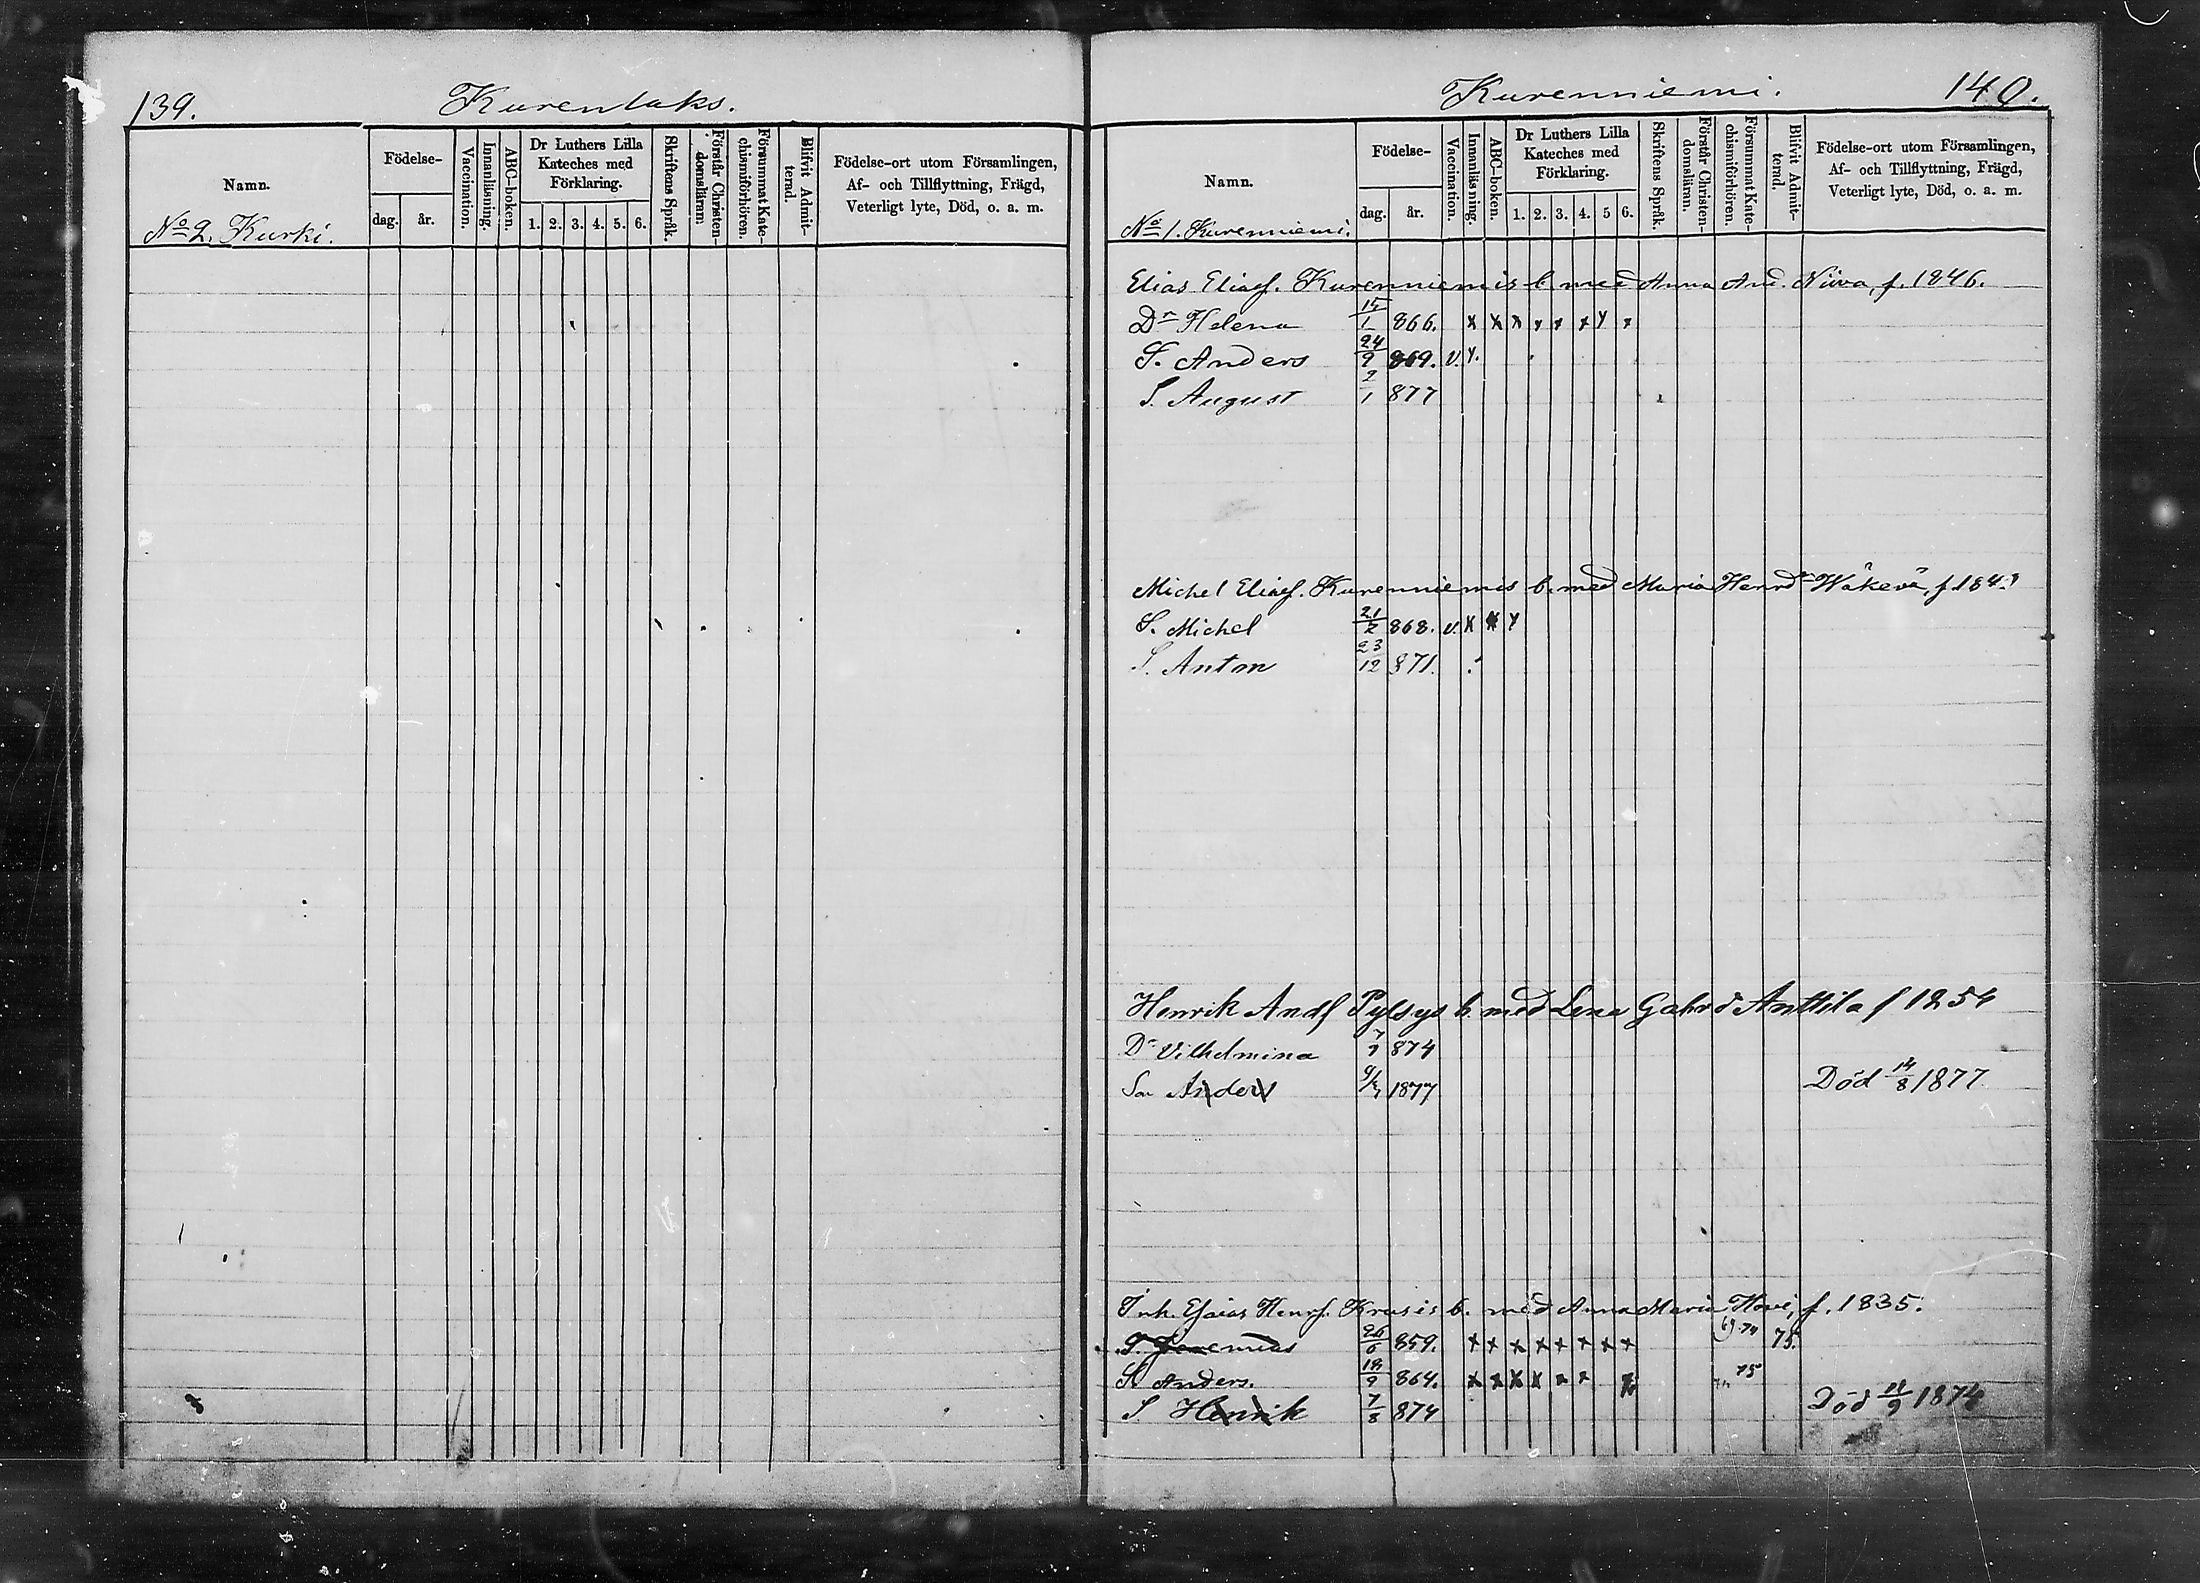 139.
Kurenlaks.
Namn.
No 2. Kurki.
Födelse-
dag.
år.
Vaccination.
Innanläsning.
ABC-boken.
Dr Luthers Lilla
Kateches med
Förklaring.
1. 2. 3. 4. 5. 6.
Skriftens Språk.
Förstår Christen-
domsläran.
Försummat Kate-
chismiförhören.
Blifvit Admit-
terad.
Födelse-ort utom Församlingen,
Af- och Tillflyttning, Frägd,
Veterligt lyte, Död, o. a. m.
Kurenniemi.
140.
Namn.
No 1. Kurenniemi.
Födelse-
dag.
år.
Vaccination.
Innanläsning.
ABC-boken.
Dr Luthers Lilla
Kateches med
Förklaring.
1. 2. 3. 4. 5 6.
Skriftens Språk.
Förstår Christen-
domsläran.
Försummat Kate-
chismiförhören.
Blifvit Admit-
terad.
Födelse-ort utom Församlingen,
Af- och Tillflyttning, Frägd,
Veterligt lyte, Död, o. a. m.
Elias Eliasf. Kurenniemis b. med Anna And. Niiva, f. 1846.
Dr Helena 15/1 866. x x x x x x y x
S. Anders 24/9 869. v. y.
S. August 2/1 877
Michel Eliasf. Kurenniemis b. med Maria Henrdr Wäkevä, f.
S. Michel 21/2 868. v. x x y
S. Anton 23/12 871.
Henrik Andf Pylsys b. med Lena Gabrd Anttila f 1854
Dr Vilhelmina 7/9 874
Son Anders 1877 Död 14/8 1877
Inh. Esaias Henrf. Krusis b. med Anna Maria Hovi, f. 1835.
S. Jeremias 26/6 859. x x x x x x x x 69.74 75.
S. Anders. 18/9 864. x x x x x x x 75
S Henrik 7/8 874 Död 11/9 1874